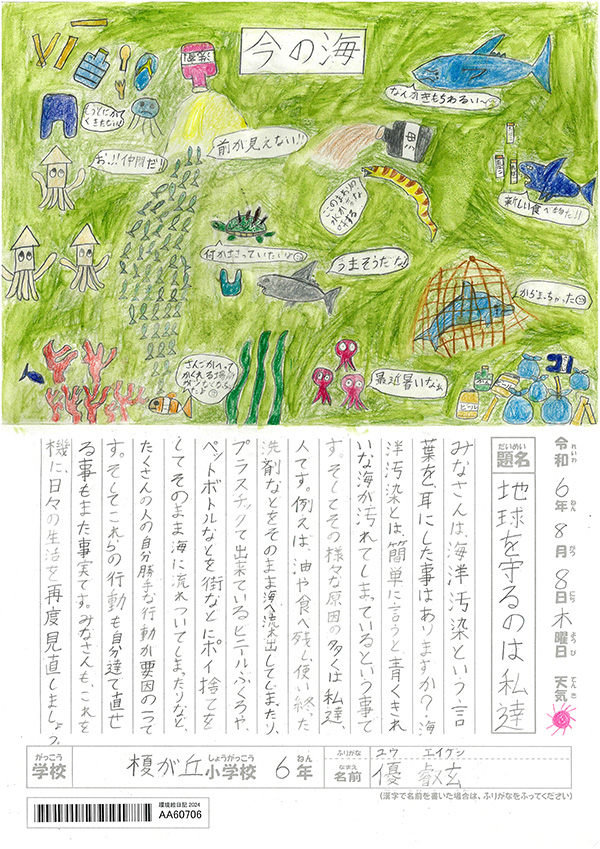 今の海
洗剤
なんかきもちわるい〜
前が見えない!!
おっ!!仲間だ!!
新しい食べ物だ!!
何かささっていたいよ
うまそうだな
からまっちゃった
さんごがへって
かくれる場所
最近暑いなぁ
令和6年8月8日木曜日 天気
れいわ ねん がつ にち ようび てんき
だいめい
題名 地球を守るのは私達
みなさんは、海洋汚染という言
葉を、耳にした事はありますか?海
洋汚染とは、簡単に言うと青くきれ
いな海が汚れてしまっているという事で
す。そしてその様々な原因の多くは私達、
人です。例えば、油や食べ残し、使い終った
洗剤などをそのまま海へ流れ出してしまったり、
プラスチックで出来ているビニールぶくろや、
ペットボトルなどを街などにポイ捨てを
してそのまま海に流れついてしまったりなど、
たくさんの人の自分勝手な行動が要因の一つで
す。そしてこれらの行動も自分達で直せ
る事もまた事実です。みなさんも、これを
機に、日々の生活を再度見直しましょう。
がっこう しょうがっこう ねん
学校 榎が丘小学校 6年
ふりがな ユウ エイゲン
なまえ
名前 優 叡玄
(漢字で名前を書いた場合は、ふりがなをふってください)
環境絵日記 2024
AA60706